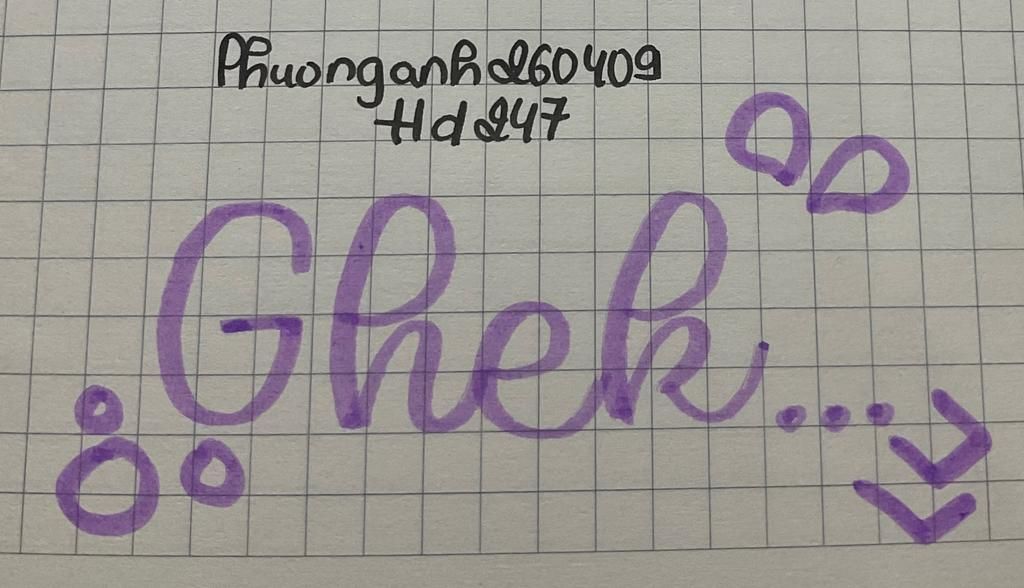 Phuonganh260409
Hd247
Ghek...